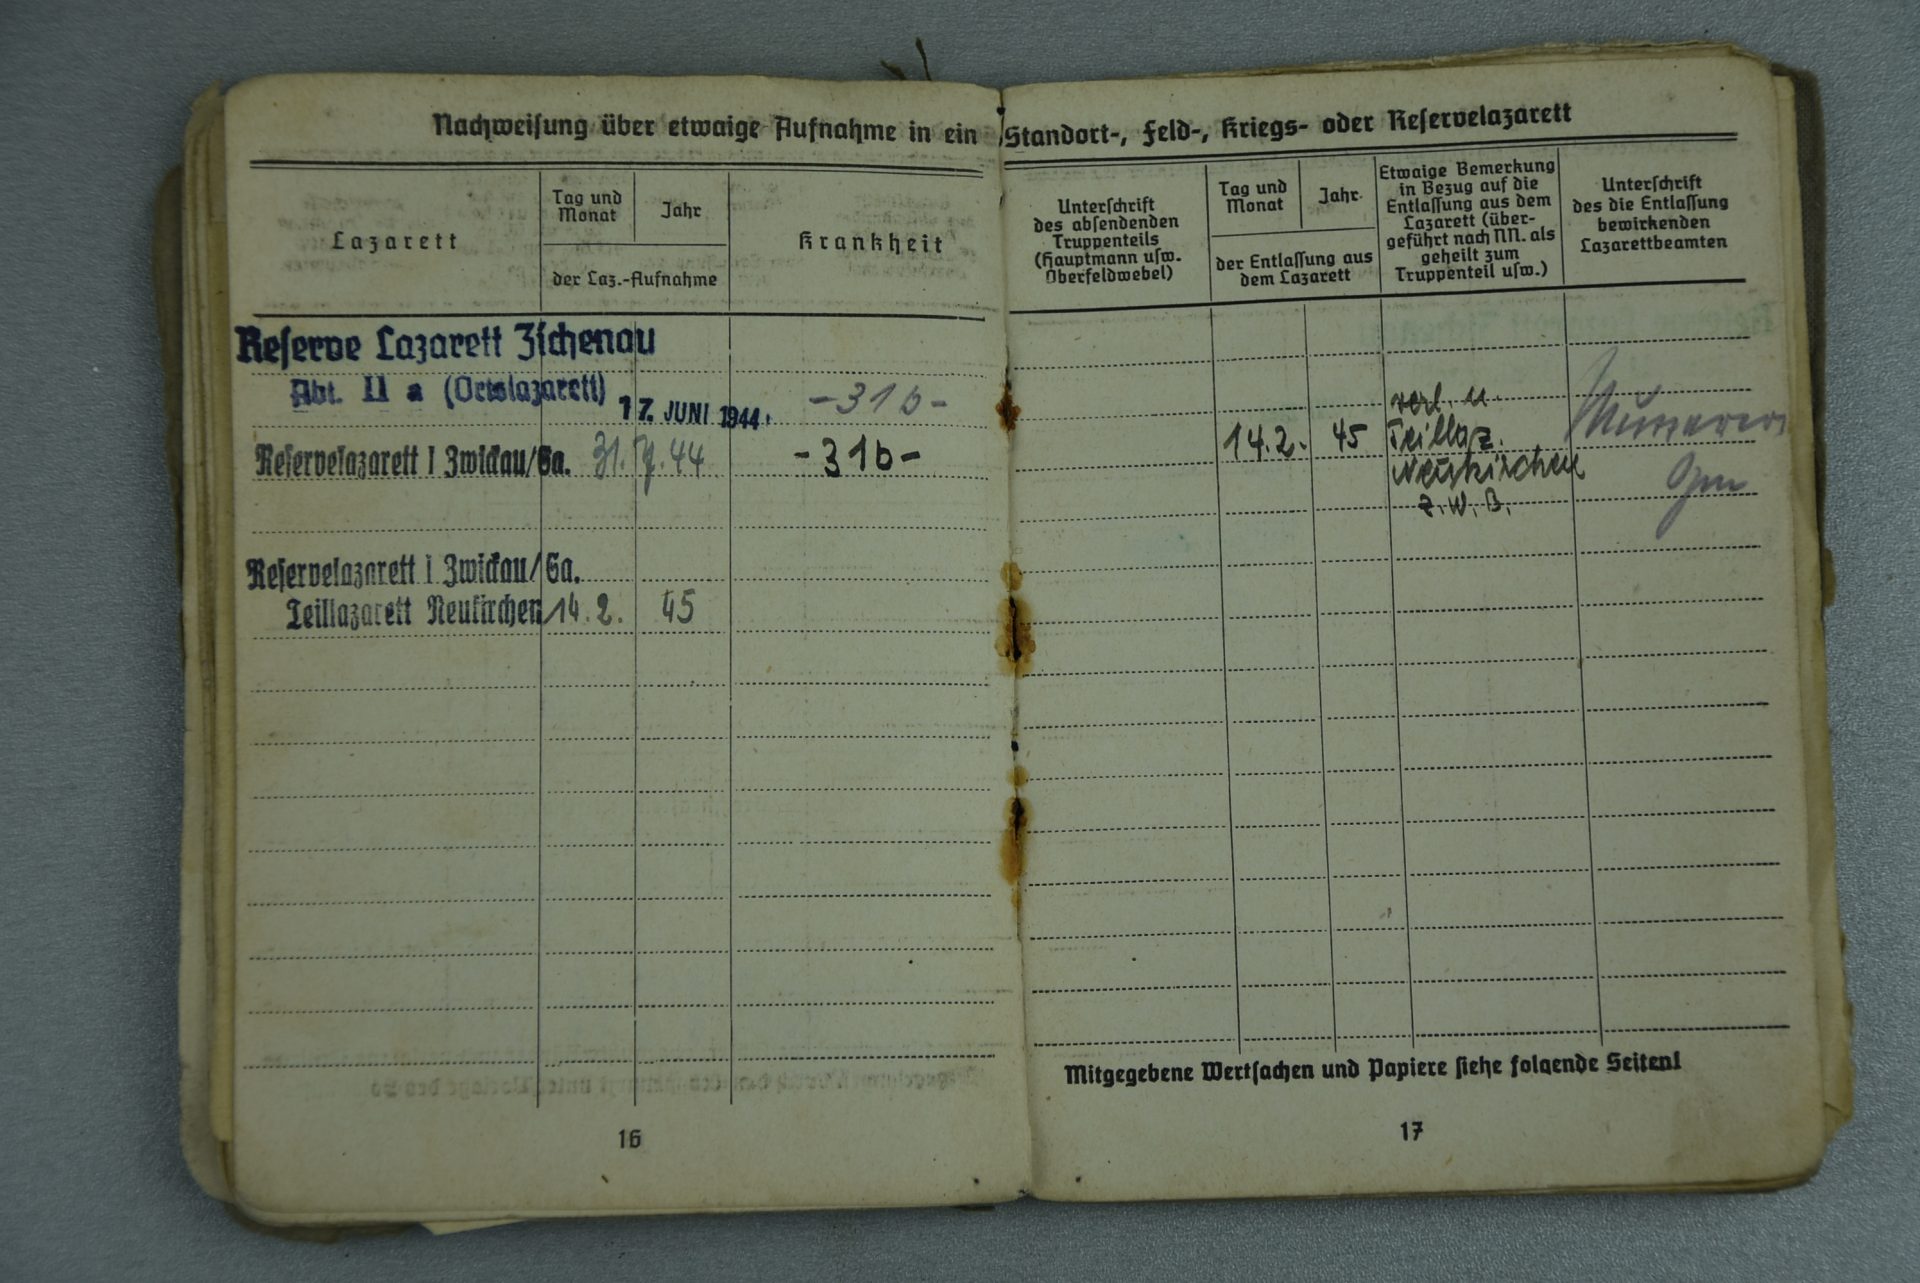 Nachweisung über etwaige Aufnahme in ein Standort-, Feld-, Kriegs- oder Reservelazarett
Lazarett
Tag und
Monat
Jahr
der Laz.-Aufnahme
Krankheit
Reserve Lazarett Zichenau
Abt. II a (Ortslazarett)
17. JUNI 1944
-31b-
Reservelazarett I Zwickau/Sa. 31. 7. 44
-31b-
Reservelazarett I Zwickau/Sa.
Teillazarett Neukirchen 14. 2. 45
16
Unterschrift
des absendenden
Truppenteils
(Hauptmann usw.
Oberfeldwebel)
Tag und
Monat
Jahr
der Entlassung aus
dem Lazarett
Etwaige Bemerkung
in Bezug auf die
Entlassung aus dem
Lazarett (über-
geführt nach NN. als
geheilt zum
Truppenteil usw.)
Unterschrift
des die Entlassung
bewirkenden
Lazarettbeamten
14. 2. 45
verl. n.
Teillaz.
Neukirchen
z. W. B.
Mitgegebene Wertsachen und Papiere siehe folgende Seiten!
17